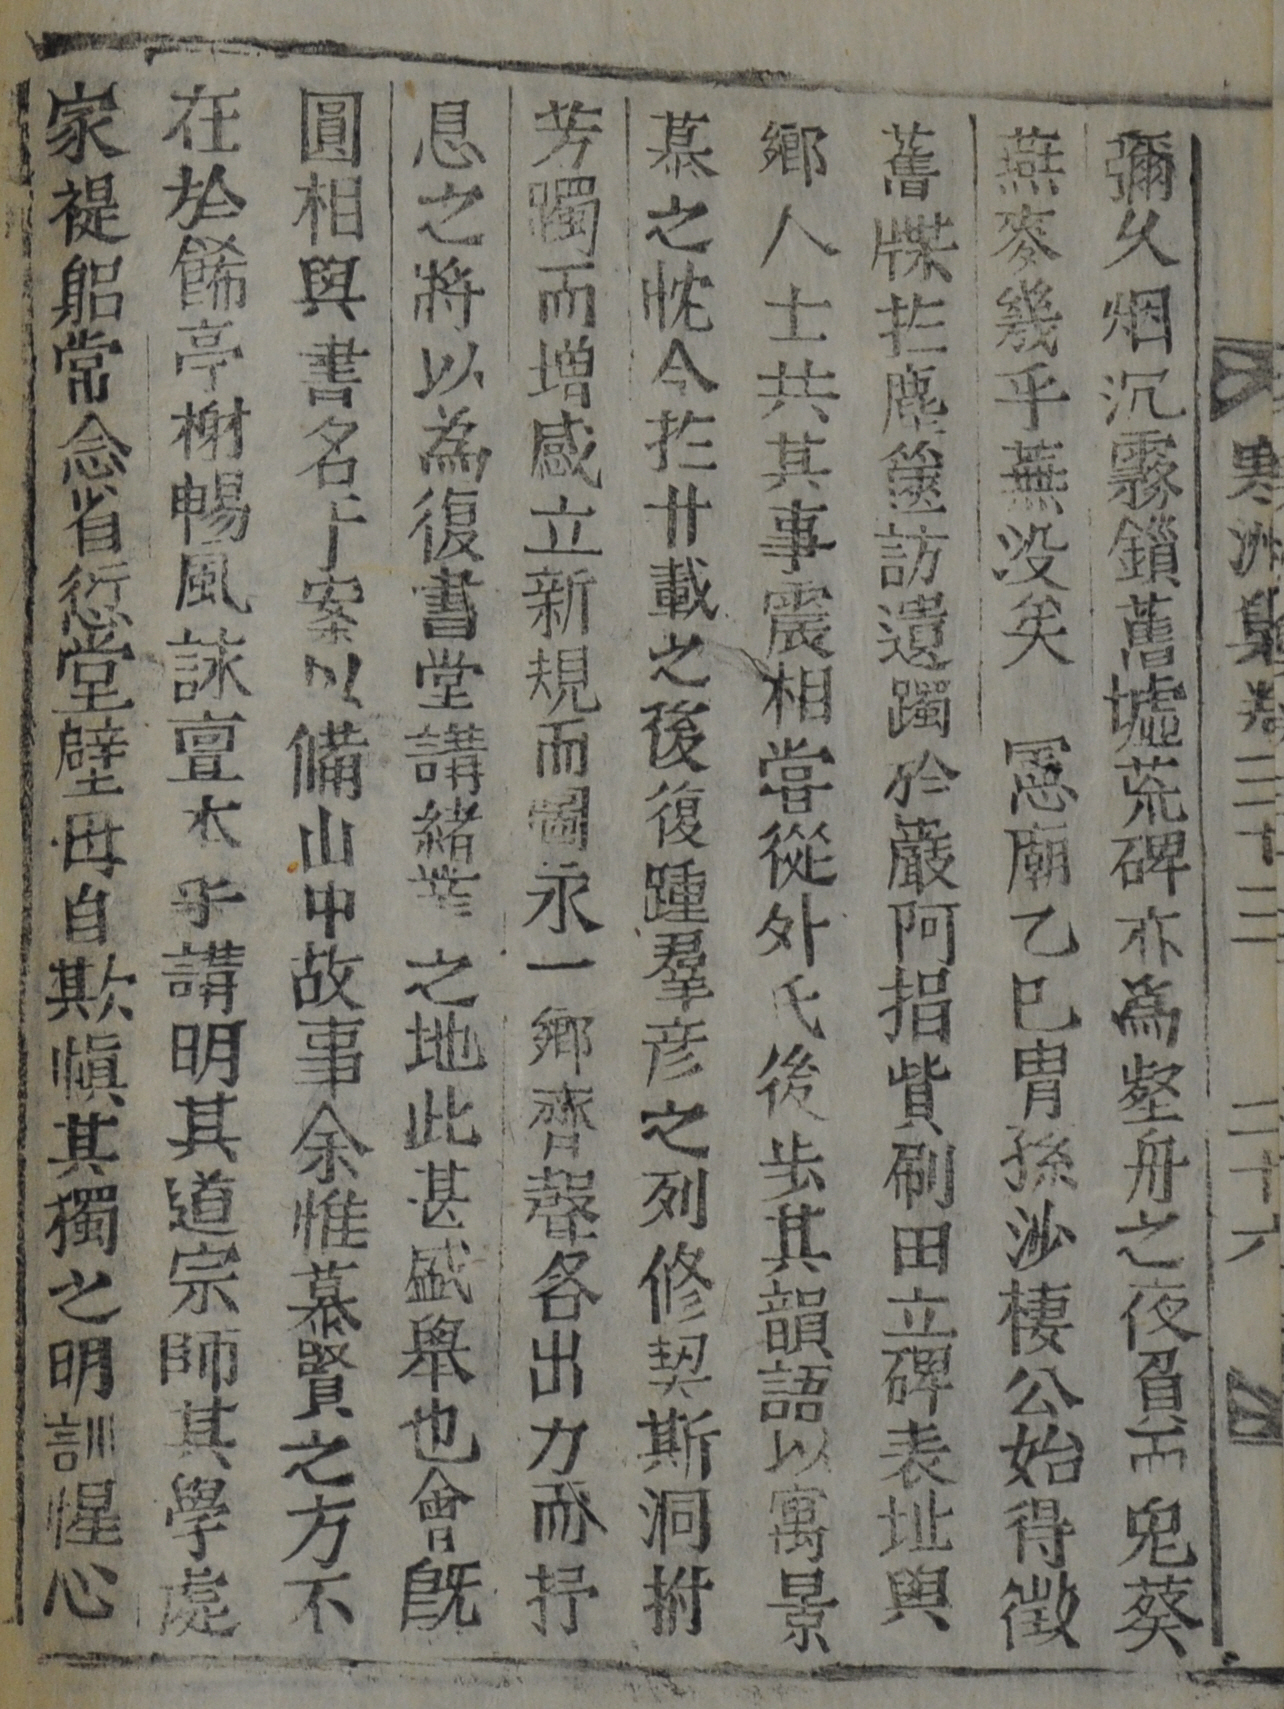 寒洲集卷三十三 二十六
彌久烟沉霧鎖舊墟荒碑亦爲壑舟之夜負而兔葵
燕麥幾乎蕪没矣 愿廟乙巳胄孫沙棲公始得徵
舊牒扵塵篋訪遺躅於巖阿捐貲刷田立碑表址與
鄉人士共其事震相嘗從外氏後步其韻語以寓景
慕之忱今扵廿載之後復踵羣彦之列修契斯洞拊
芳躅而增感立新規而圖永一鄉齊聲各出力而抒
息之將以為復書堂講緒業之地此甚盛舉也會既
圓相與書名于案以備山中故事余惟慕賢之方不
在於餙亭榭暢風詠亶不乎講明其道宗師其學處
家禔躬常念省愆堂壁毋自欺愼其獨之明訓惺心